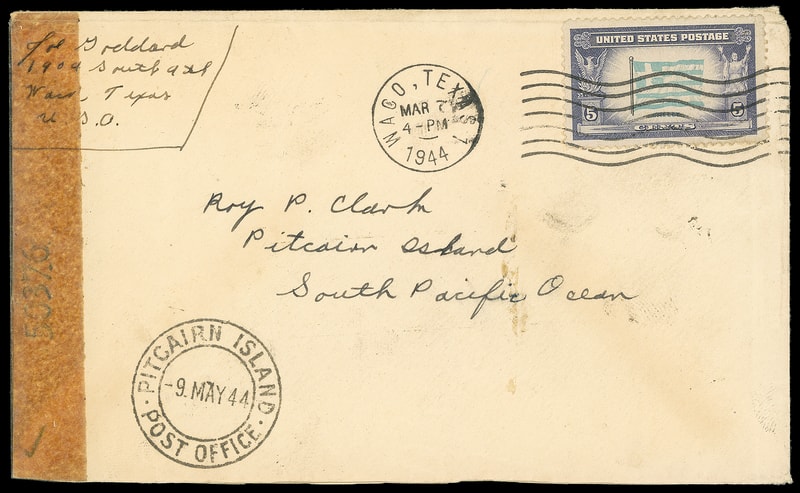 Joe Goddard
1904 South 9th
Waco, Texas
U. S. A.
WACO, TEXAS
MAR 7
4-PM
1944
UNITED STATES POSTAGE
5 5
CENTS
Roy P. Clark
Pitcairn Island
South Pacific Ocean
PITCAIRN ISLAND
-9. MAY 44
POST OFFICE